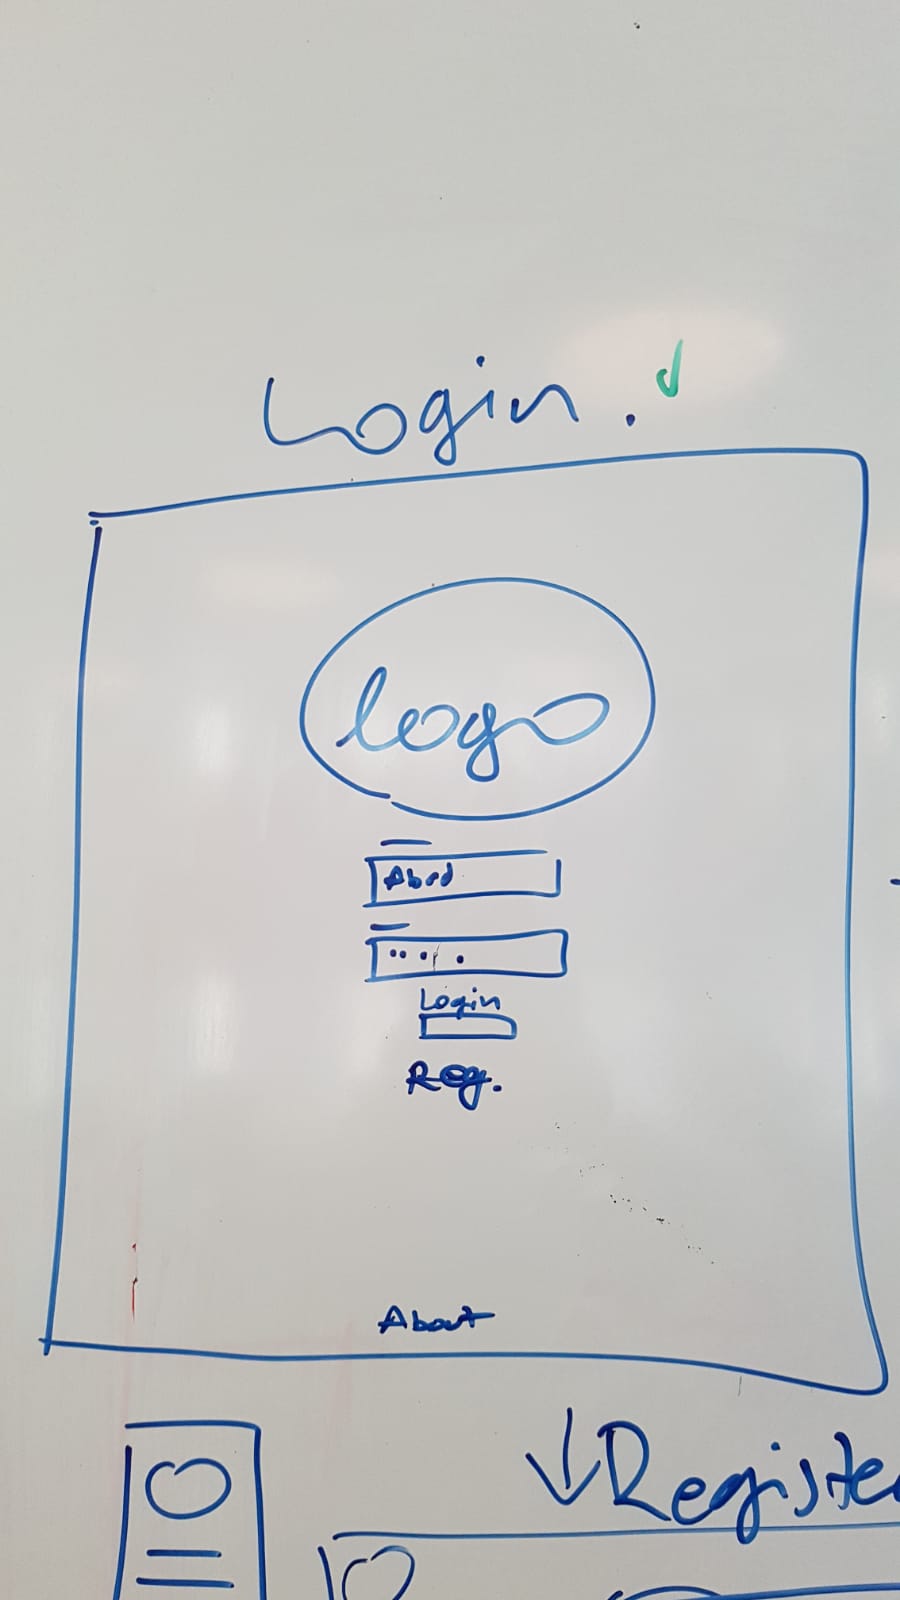 Login.
logo
Abcd
Login
Reg.
About
Registe